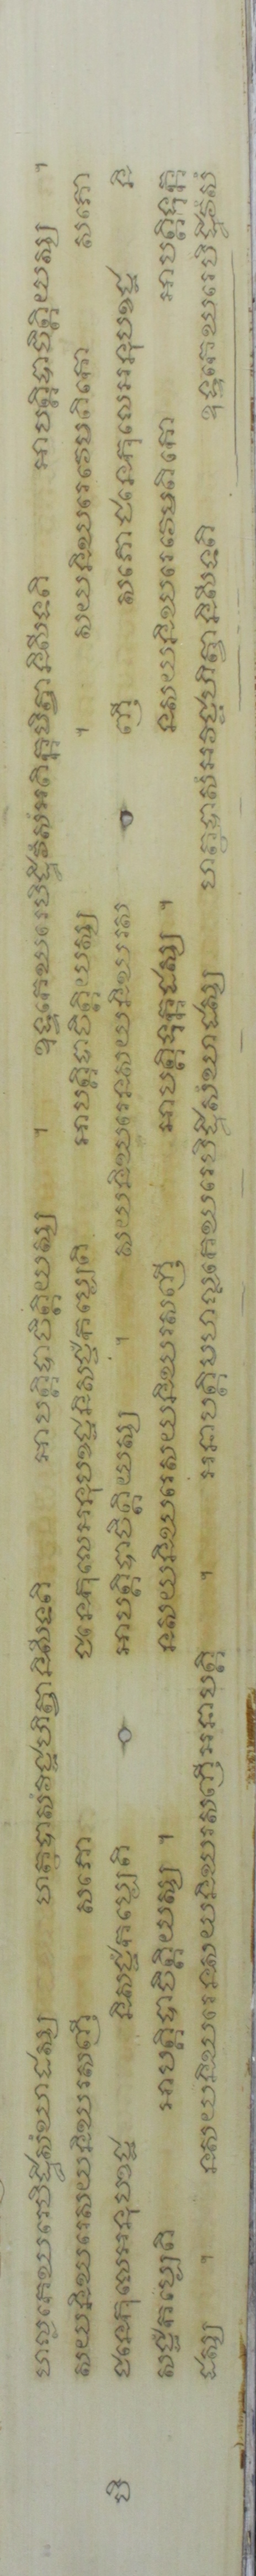 ហល្លកេឃរេបិដ្ឋិសំឃាដស្ស ហត្ថបាសំវិជ្ជហិត្វានិសីទតិ អាបត្តិបាចិត្តិយស្ស ។ ខុទ្ទកេឃរេបិដ្ឋិវំសំអតិក្កមិត្វានិសីទតិ អាបត្តិបាចិត្តិយស្ស ។
សយនិឃរេសយនិឃរសញ្ញី សភោ ជនេកុលេអនុបខជ្ជនិសជ្ជំកប្បេតិ អាបត្តិបាចិត្តិយស្ស ។ សយនិឃរេវេមតិកោ សភោ
បិ ជនេកុលេអនុបខជ្ជ និសជ្ជំកប្បេតិ អាបត្តិបាចិត្តិយស្ស ។ សយនិឃរេនសយនិឃរស ញ្ញី សភោជនេកុលេអនុបខជ្ជ និ
សជ្ជំកប្បេតិ អាបត្តិបាចិត្តិយស្ស ។ នសយនិឃរេសយនិឃរសញ្ញី អាបត្តិទុក្កដស្ស ។ នសយនិឃរេវេមតិកោ អាបត្តិទុក្ក
ដស្ស ។ នសយនិឃរេនសយនិឃរសញ្ញីអនាបត្តិ ។ អនាបត្តិមហល្លកេឃរេបិដ្ឋិសំឃាដស្ស ហត្ថបាសំអវិជ្ជហិត្វានិសីទតិ ខុទ្ទកេឃរេបិដ្ឋិវំសំ